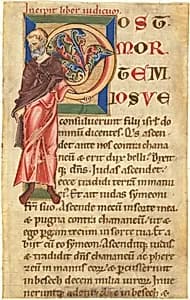 Incipit liber iudicum
POST
MOR
TEM
IOSVE
consuluerunt filii isrl do
minū dicentes. Quis ascen
det ante nos contra chana
neū & erit dux belli. Dixit
que dn̄s. Iudas ascendet.
Ecce tradidi terrā in manu
ei. Et ait iudas symeoni
fr̄i suo. Ascende mecū in sorte mea
& pugna contra chananeū. ut & e
go pergā tecum in sorte tua. Et a
biit cū eo symeon. Ascenditq; iudas. &
tradidit dn̄s chananeū ac phere
zeū in manus eorū. & percusserunt
in bezech decem milia uirorum. Inue